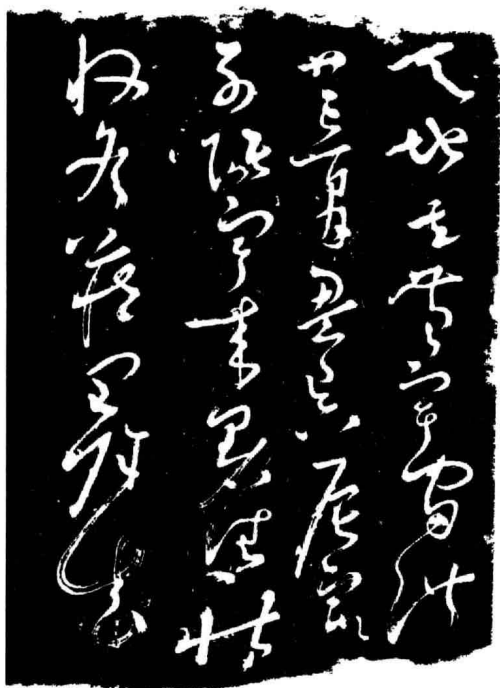 天地玄黃宇宙洪
荒日月盈昃辰宿
列張寒来暑往秋
收冬藏閏餘成歲